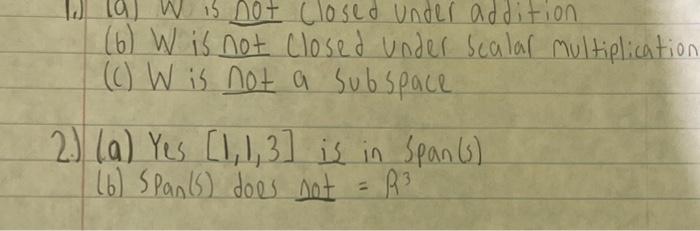 1.) (a) W is not closed under addition
(b) W is not closed under scalar multiplication
(c) W is not a subspace
2.) (a) Yes [1,1,3] is in span(s)
(b) Span(s) does not = R³